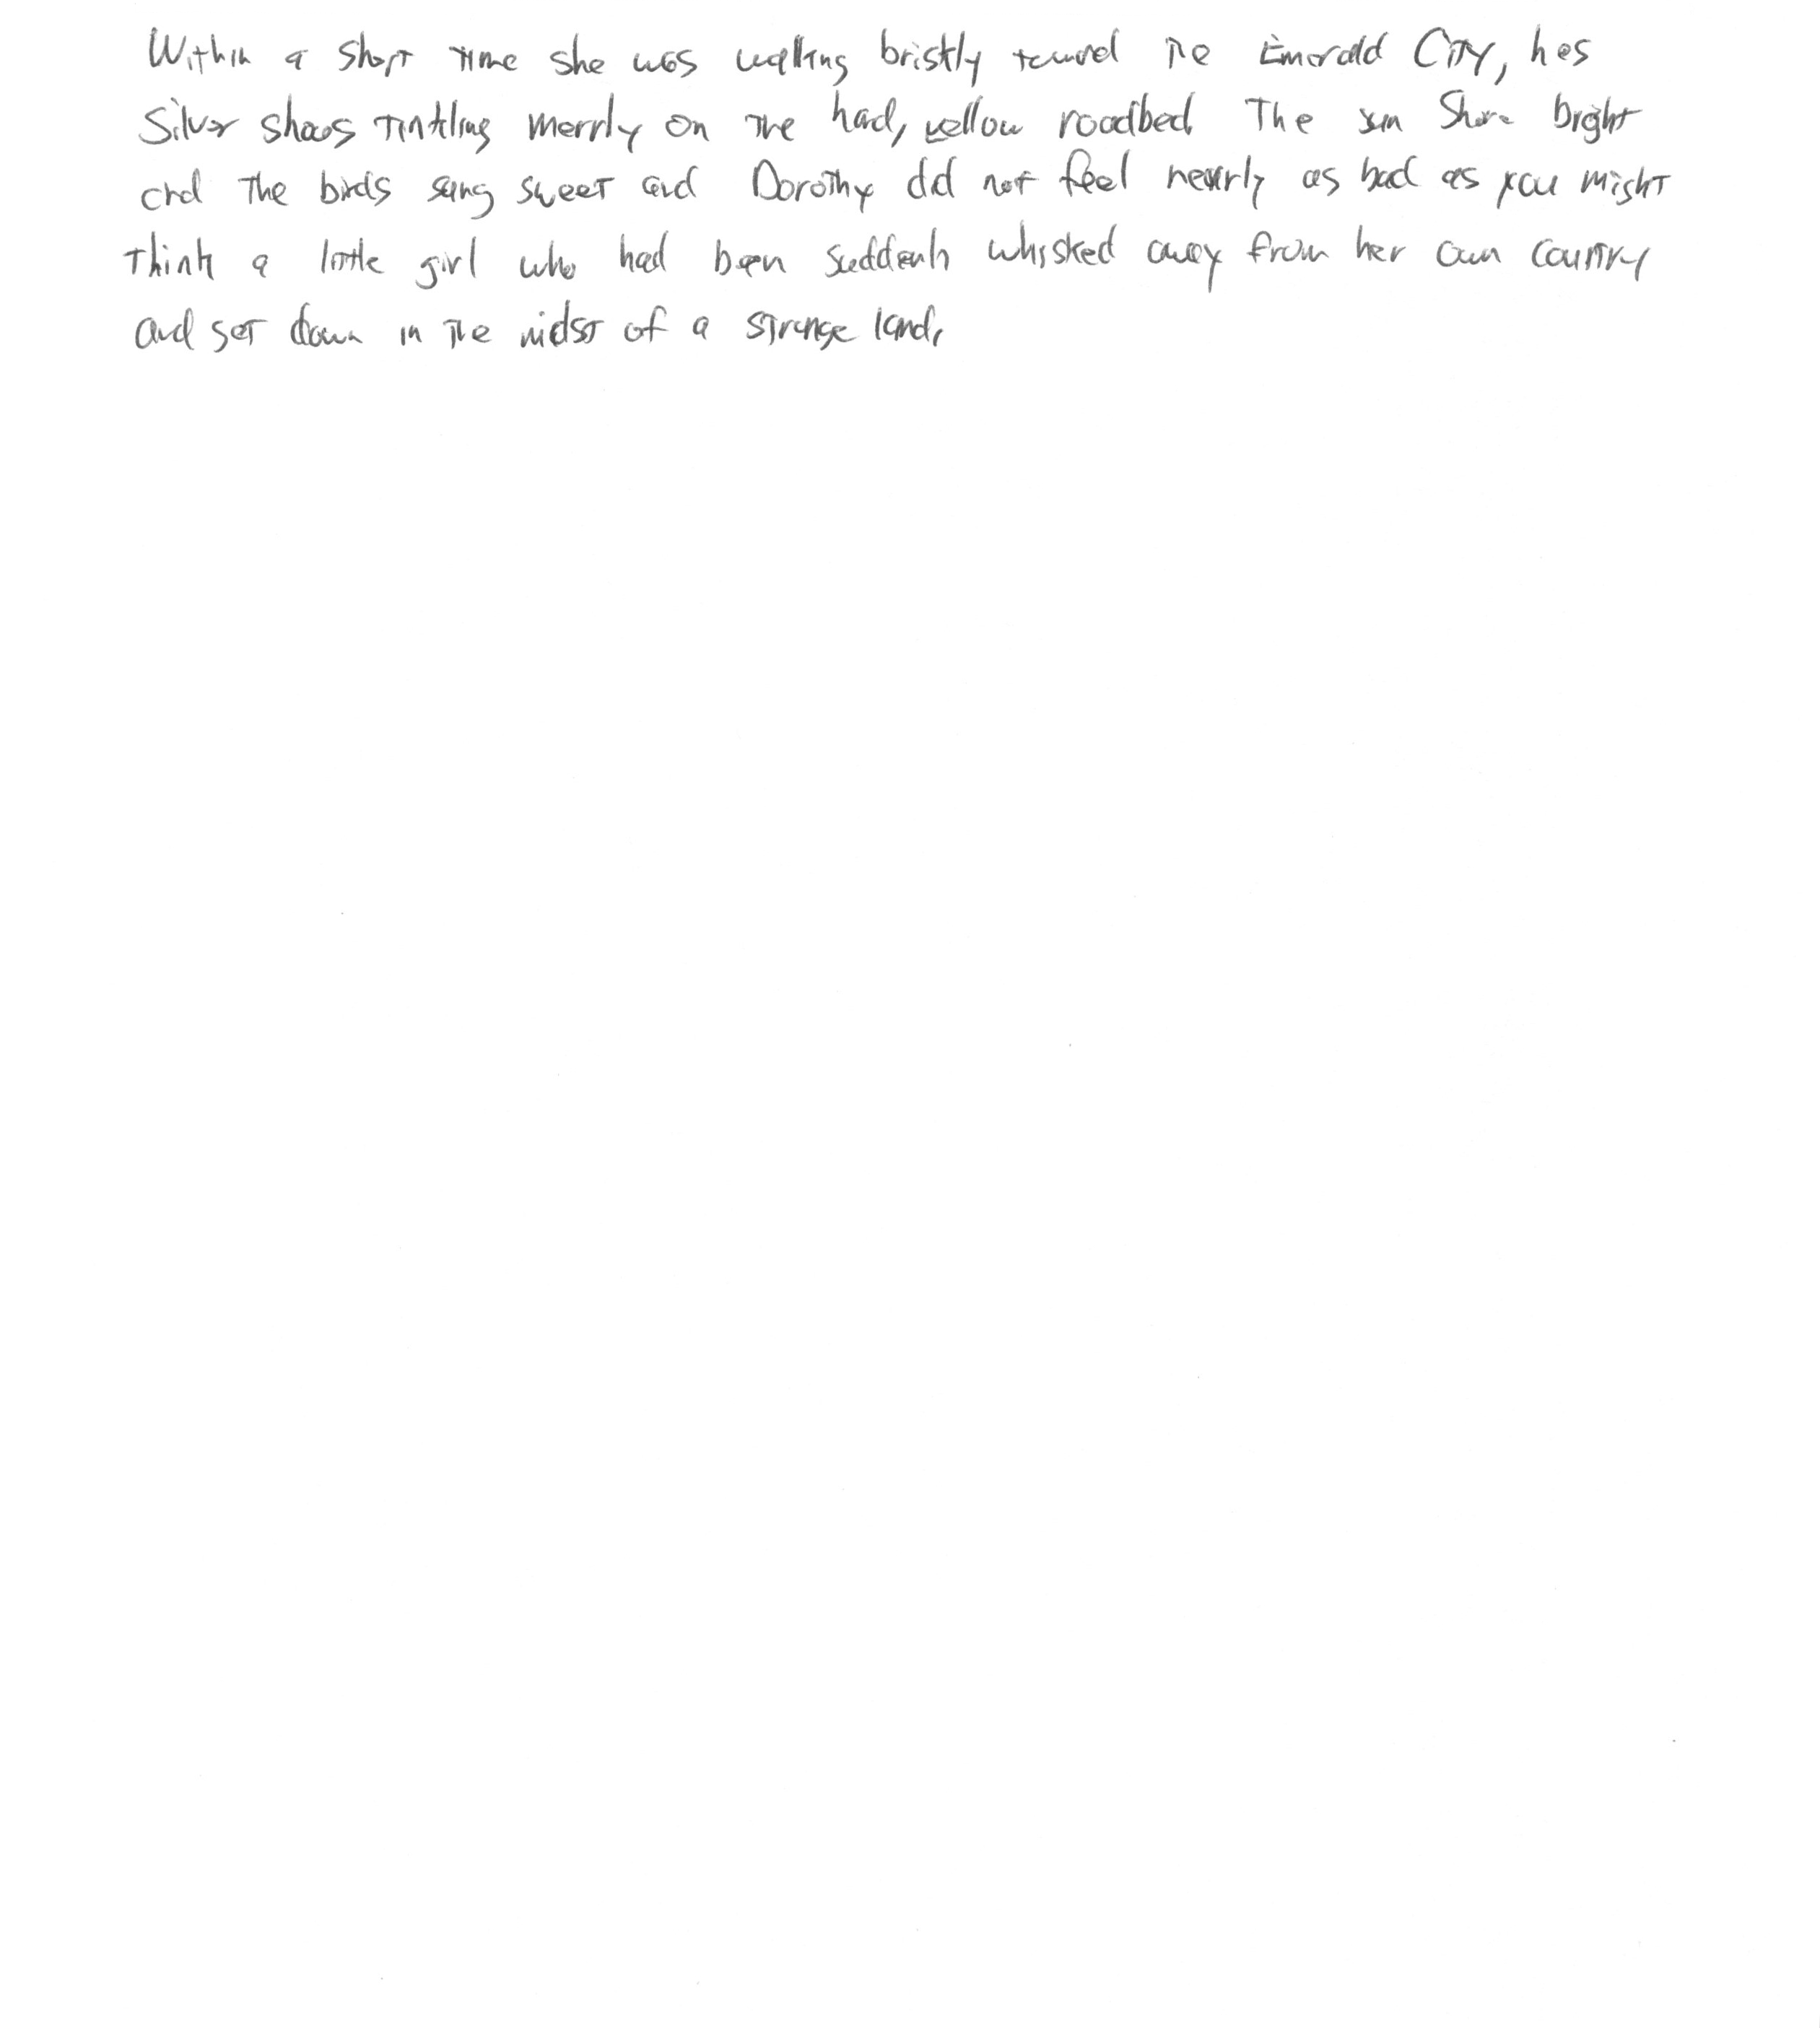 Within a short time she was walking briskly toward the Emerald City, her
Silver shoes tinkling merrily on the hard, yellow roadbed. The sun shone bright
and the birds sang sweet and Dorothy did not feel nearly as bad as you might
think a little girl who had been suddenly whisked away from her own country
and set down in the midst of a strange land.